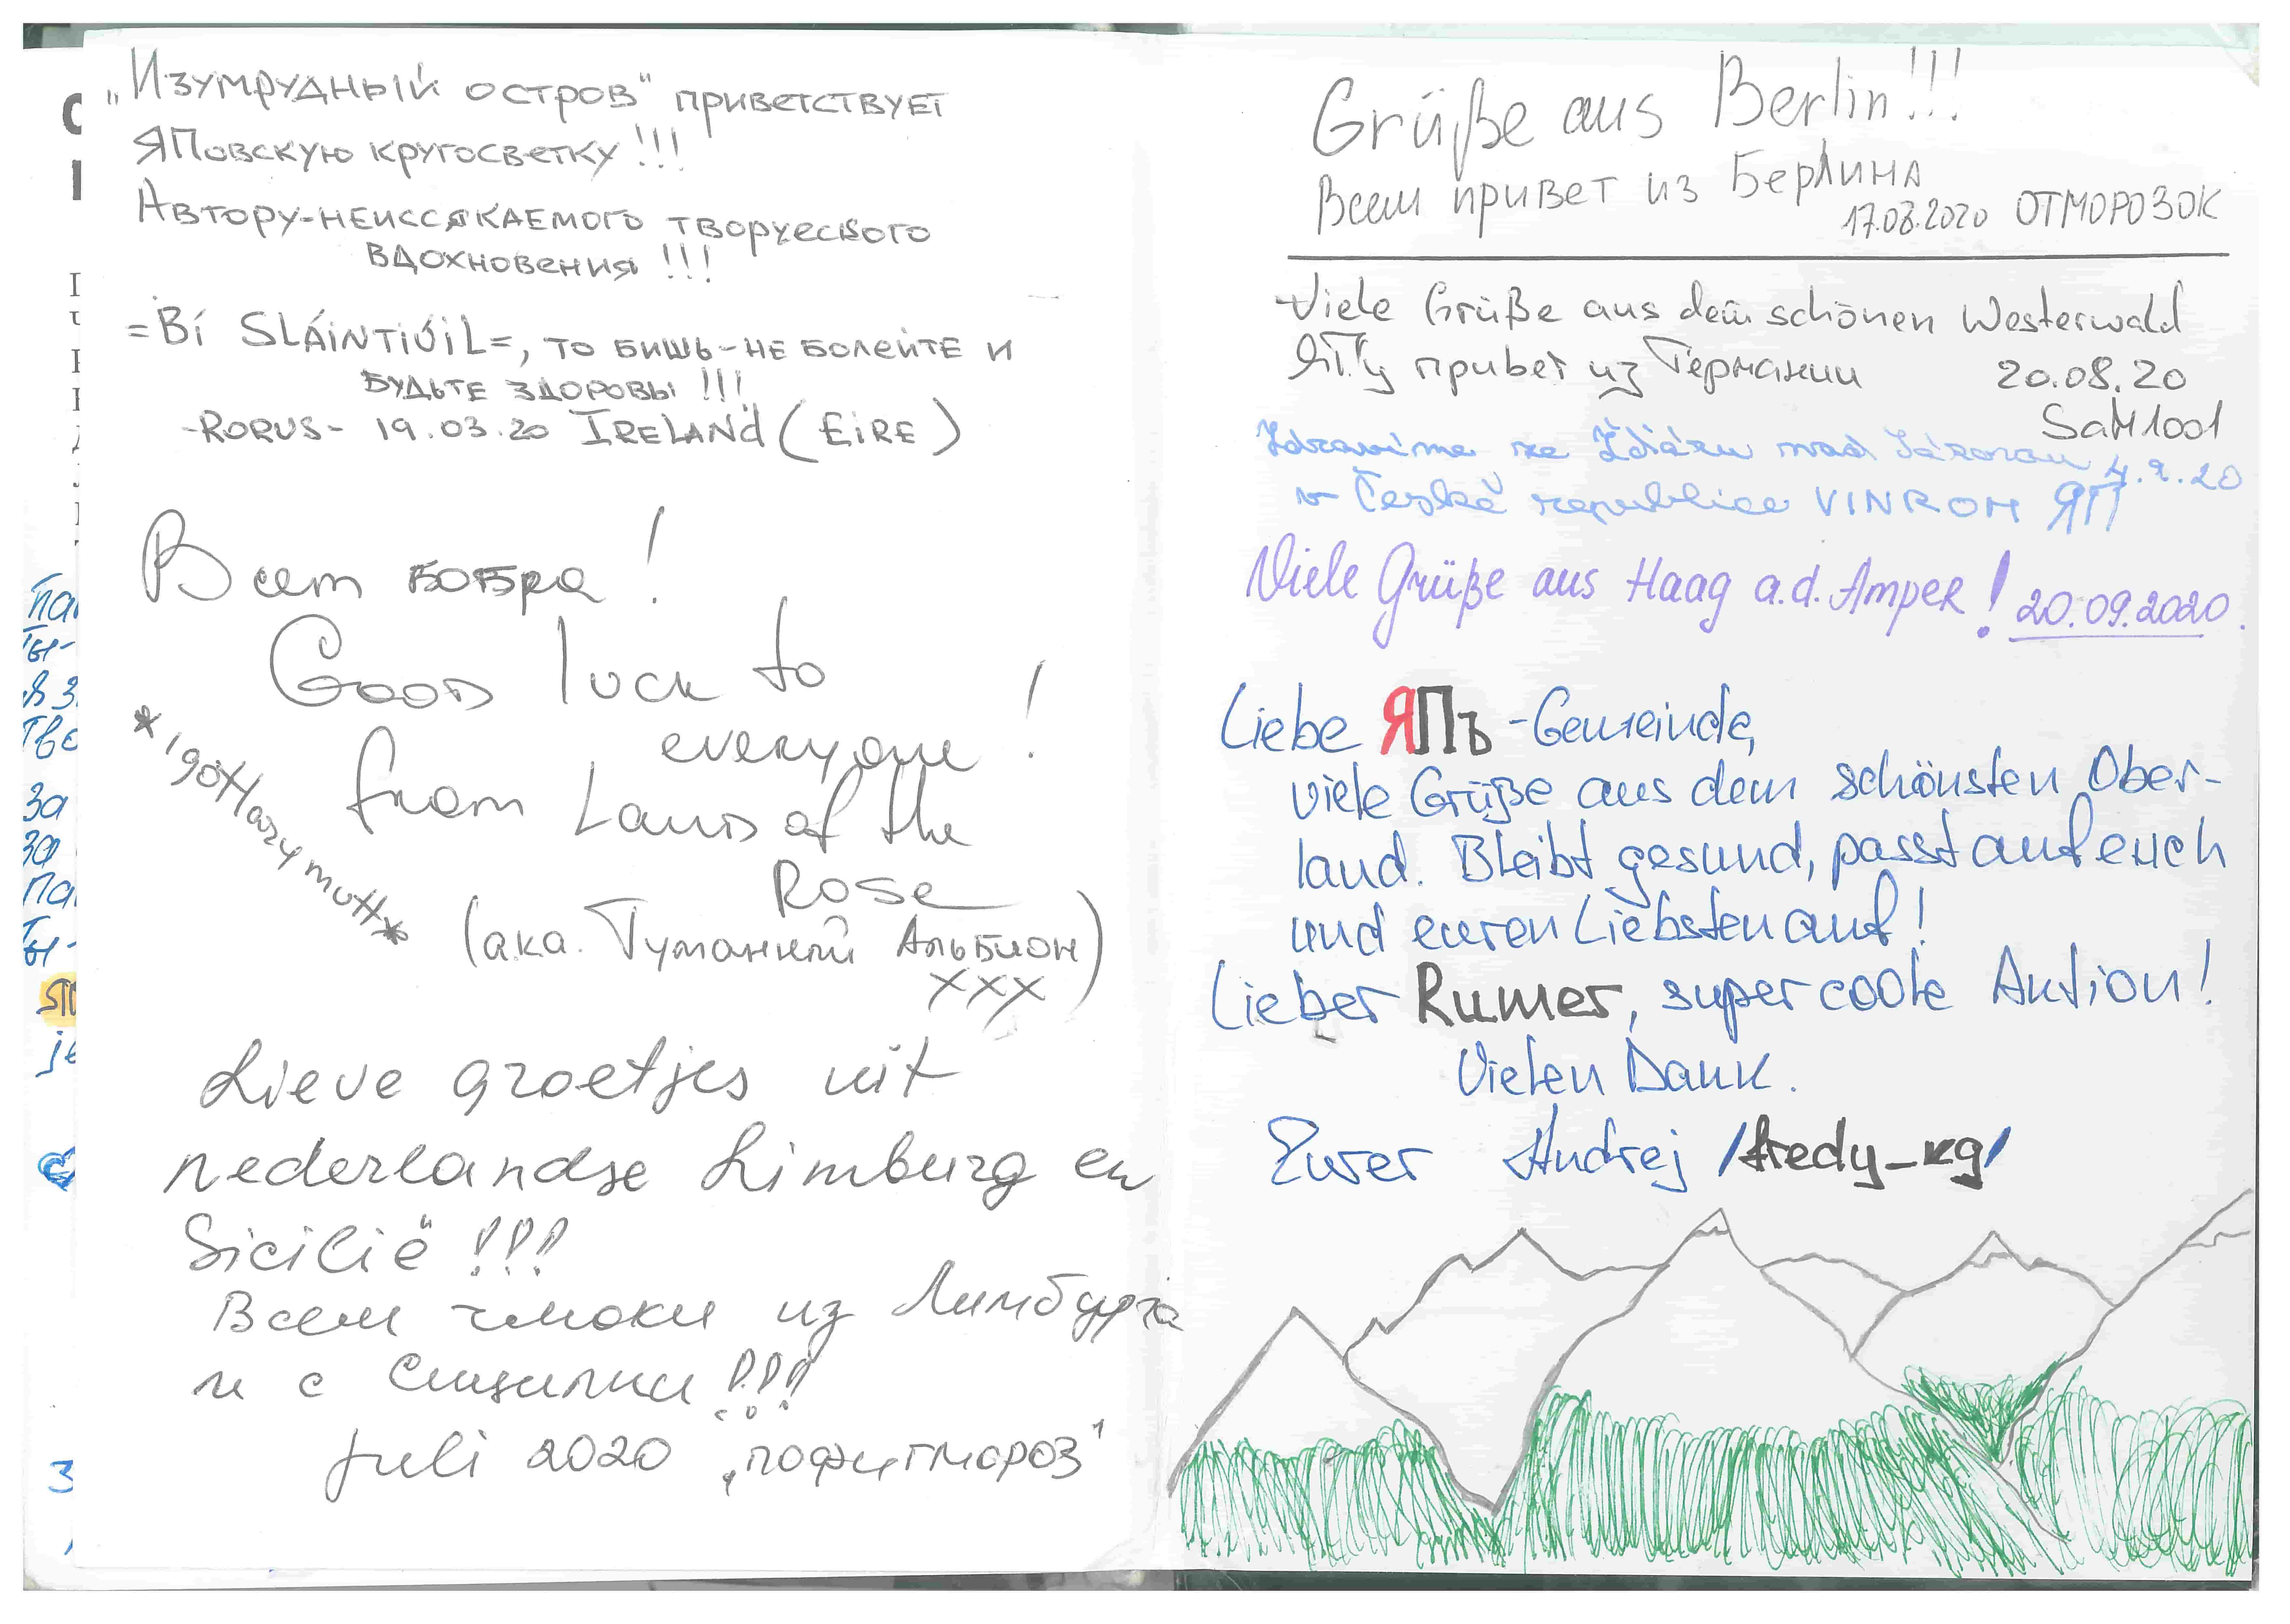 „Изумрудный остров" приветствует
ЯПовскую кругосветку!!!
Автору-неиссякаемого творческого
вдохновения!!!
=Bí SLÁiNTiÚiL=, то бишь-не болейте и
будьте здоровы!!!
-RORUS- 19.03.20 IRELANd (EiRE)
Всем бобра!
Good luck to
everyone!
from Land of the
Rose
(a.k.a. Туманный Альбион)
xxx
Lieve groetjes uit
nederlandse Limburg en
Sicilië!!!
Всем чмоки из Лимбурга
и с Сицилии!!!
juli 2020 „пофигмороз"
Grüße aus Berlin!!!
Всем привет из Берлина
17.08.2020 ОТМОРОЗОК
Viele Grüße aus dem schönen Westerwald
ЯПу привет из Германии 20.08.20
SaM1001
Zdravíme ze Žďáru nad Sázavou 4.9.20
v České republice VINROM ЯП
Viele Grüße aus Haag a.d. Amper! 20.09.2020.
Liebe ЯПъ-Gemeinde,
viele Grüße aus dem schönsten Ober-
land. Bleibt gesund, passt auf euch
und euren Liebsten auf!
Lieber Rumer, super coole Aktion!
Vielen Dank.
Eurer Andrej /fredy_kg/